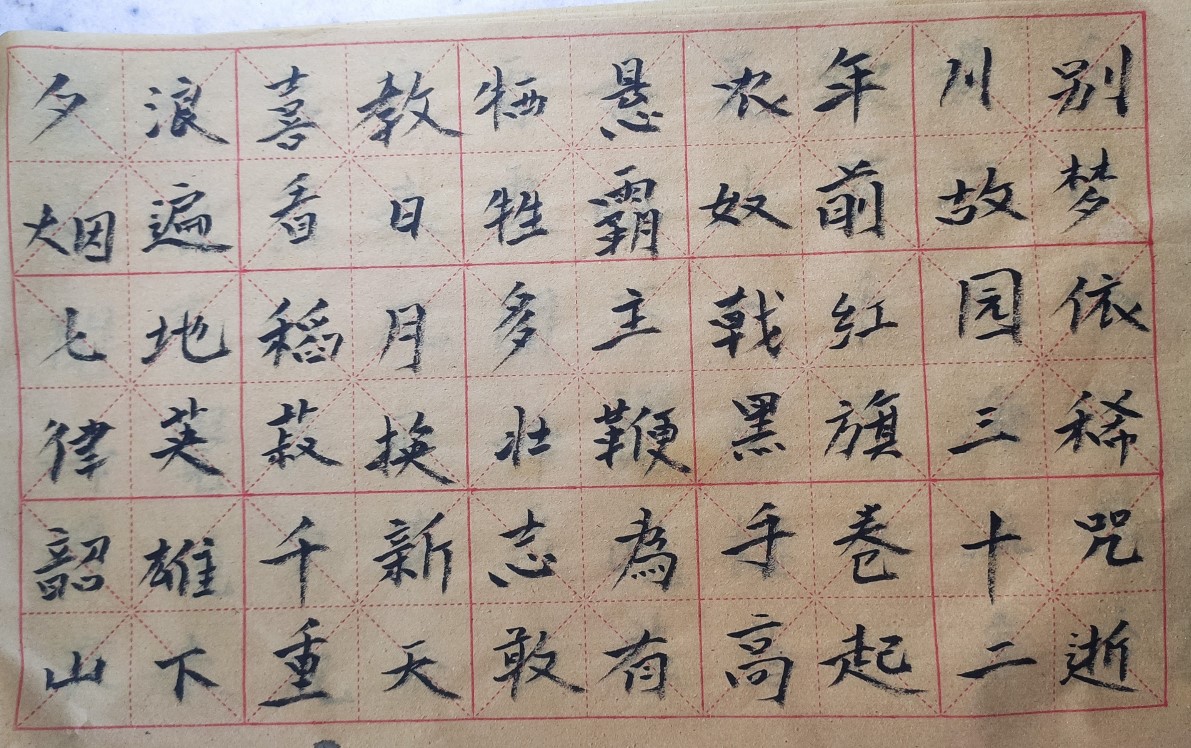 别梦依稀咒逝
川故园三十二
年前红旗卷起
农奴戟黑手高
悬霸主鞭為有
牺牲多壮志敢
教日月换新天
喜看稻菽千重
浪遍地英雄下
夕烟七律韶山